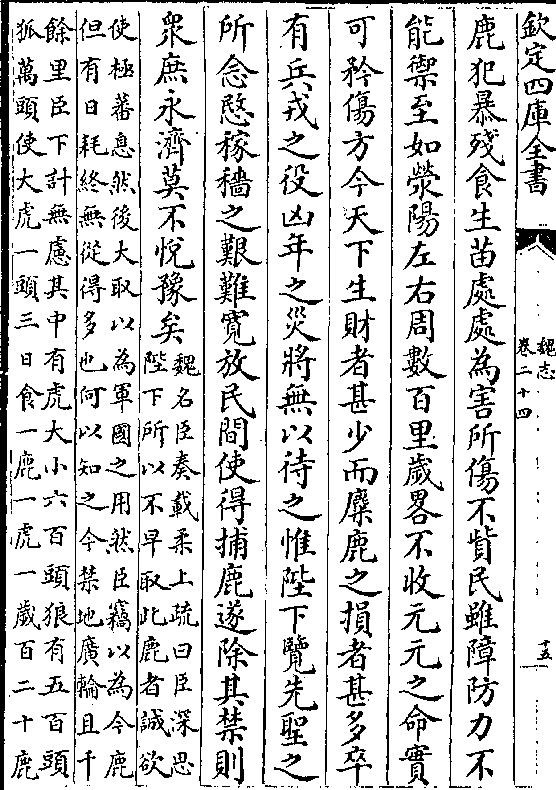 欽定四庫全書
魏志
卷二十四
十五
鹿犯暴殘食生苗處處為害所傷不貲民雖障防力不
能禦至如滎陽左右周數百里歲畧不收元元之命實
可矜傷方今天下生財者甚少而麋鹿之損者甚多卒
有兵戎之役凶年之災將無以待之惟陛下覽先聖之
所念愍稼穡之艱難寛放民間使得捕鹿遂除其禁則
衆庶永濟莫不悅豫矣
魏名臣奏載柔上疏曰臣深思
陛下所以不早取此鹿者誠欲
使極蕃息然後大取以為軍國之用然臣竊以為今鹿
但有日耗終無從得多也何以知之今禁地廣輪且千
餘里臣下計無慮其中有虎大小六百頭狼有五百頭
狐萬頭使大虎一頭三日食一鹿一虎一歲百二十鹿